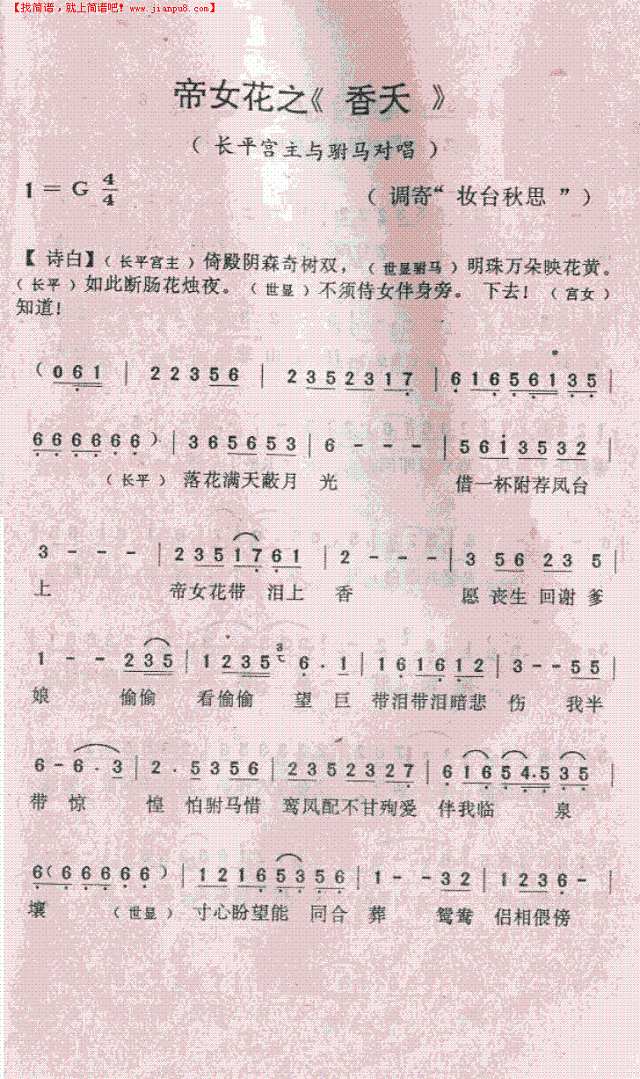 【找简谱，就上简谱吧! www.jianpu8.com】
帝女花之《 香夭 》
（ 长平宫主与驸马对唱 ）
1 = G 4/4
（ 调寄“ 妆台秋思 ” ）
【 诗白】（ 长平宫主 ）倚殿阴森奇树双，（ 世显驸马 ）明珠万朵映花黄。
（ 长平 ）如此断肠花烛夜。（ 世显 ）不须侍女伴身旁。 下去!（ 宫女 ）
知道!
（ 0 6 1 | 2 2 3 5 6 | 2 3 5 2 3 1 7 | 6 1 6 5 6 1 3 5 |
6 6 6 6 6 6 ）| 3 6 5 6 5 3 | 6 - - - | 5 6 1 3 5 3 2 |
（ 长平 ） 落花满天蔽月 光 借一杯附荐凤台
3 - - - | 2 3 5 1 7 6 1 | 2 - - - | 3 5 6 2 3 5 |
上 帝女花带 泪上 香 愿 丧生 回谢 爹
1 - - 2 3 5 | 1 2 3 5 6 . 1 | 1 6 1 6 1 2 | 3 - - 5 5 |
娘 偷偷 看偷偷 望 巨 带泪带泪暗悲 伤 我半
6 - 6 . 3 | 2 . 5 3 5 6 | 2 3 5 2 3 2 7 | 6 1 6 5 4 . 5 3 5 |
带 惊 惶 怕驸马惜 鸾凤配不甘殉爱 伴我临 泉
6 （ 6 6 6 6 6 ）| 1 2 1 6 5 3 5 6 | 1 - - 3 2 | 1 2 3 6 - |
壤 （ 世显 ） 寸心盼望能 同合 葬 鸳鸯 侣相偎傍